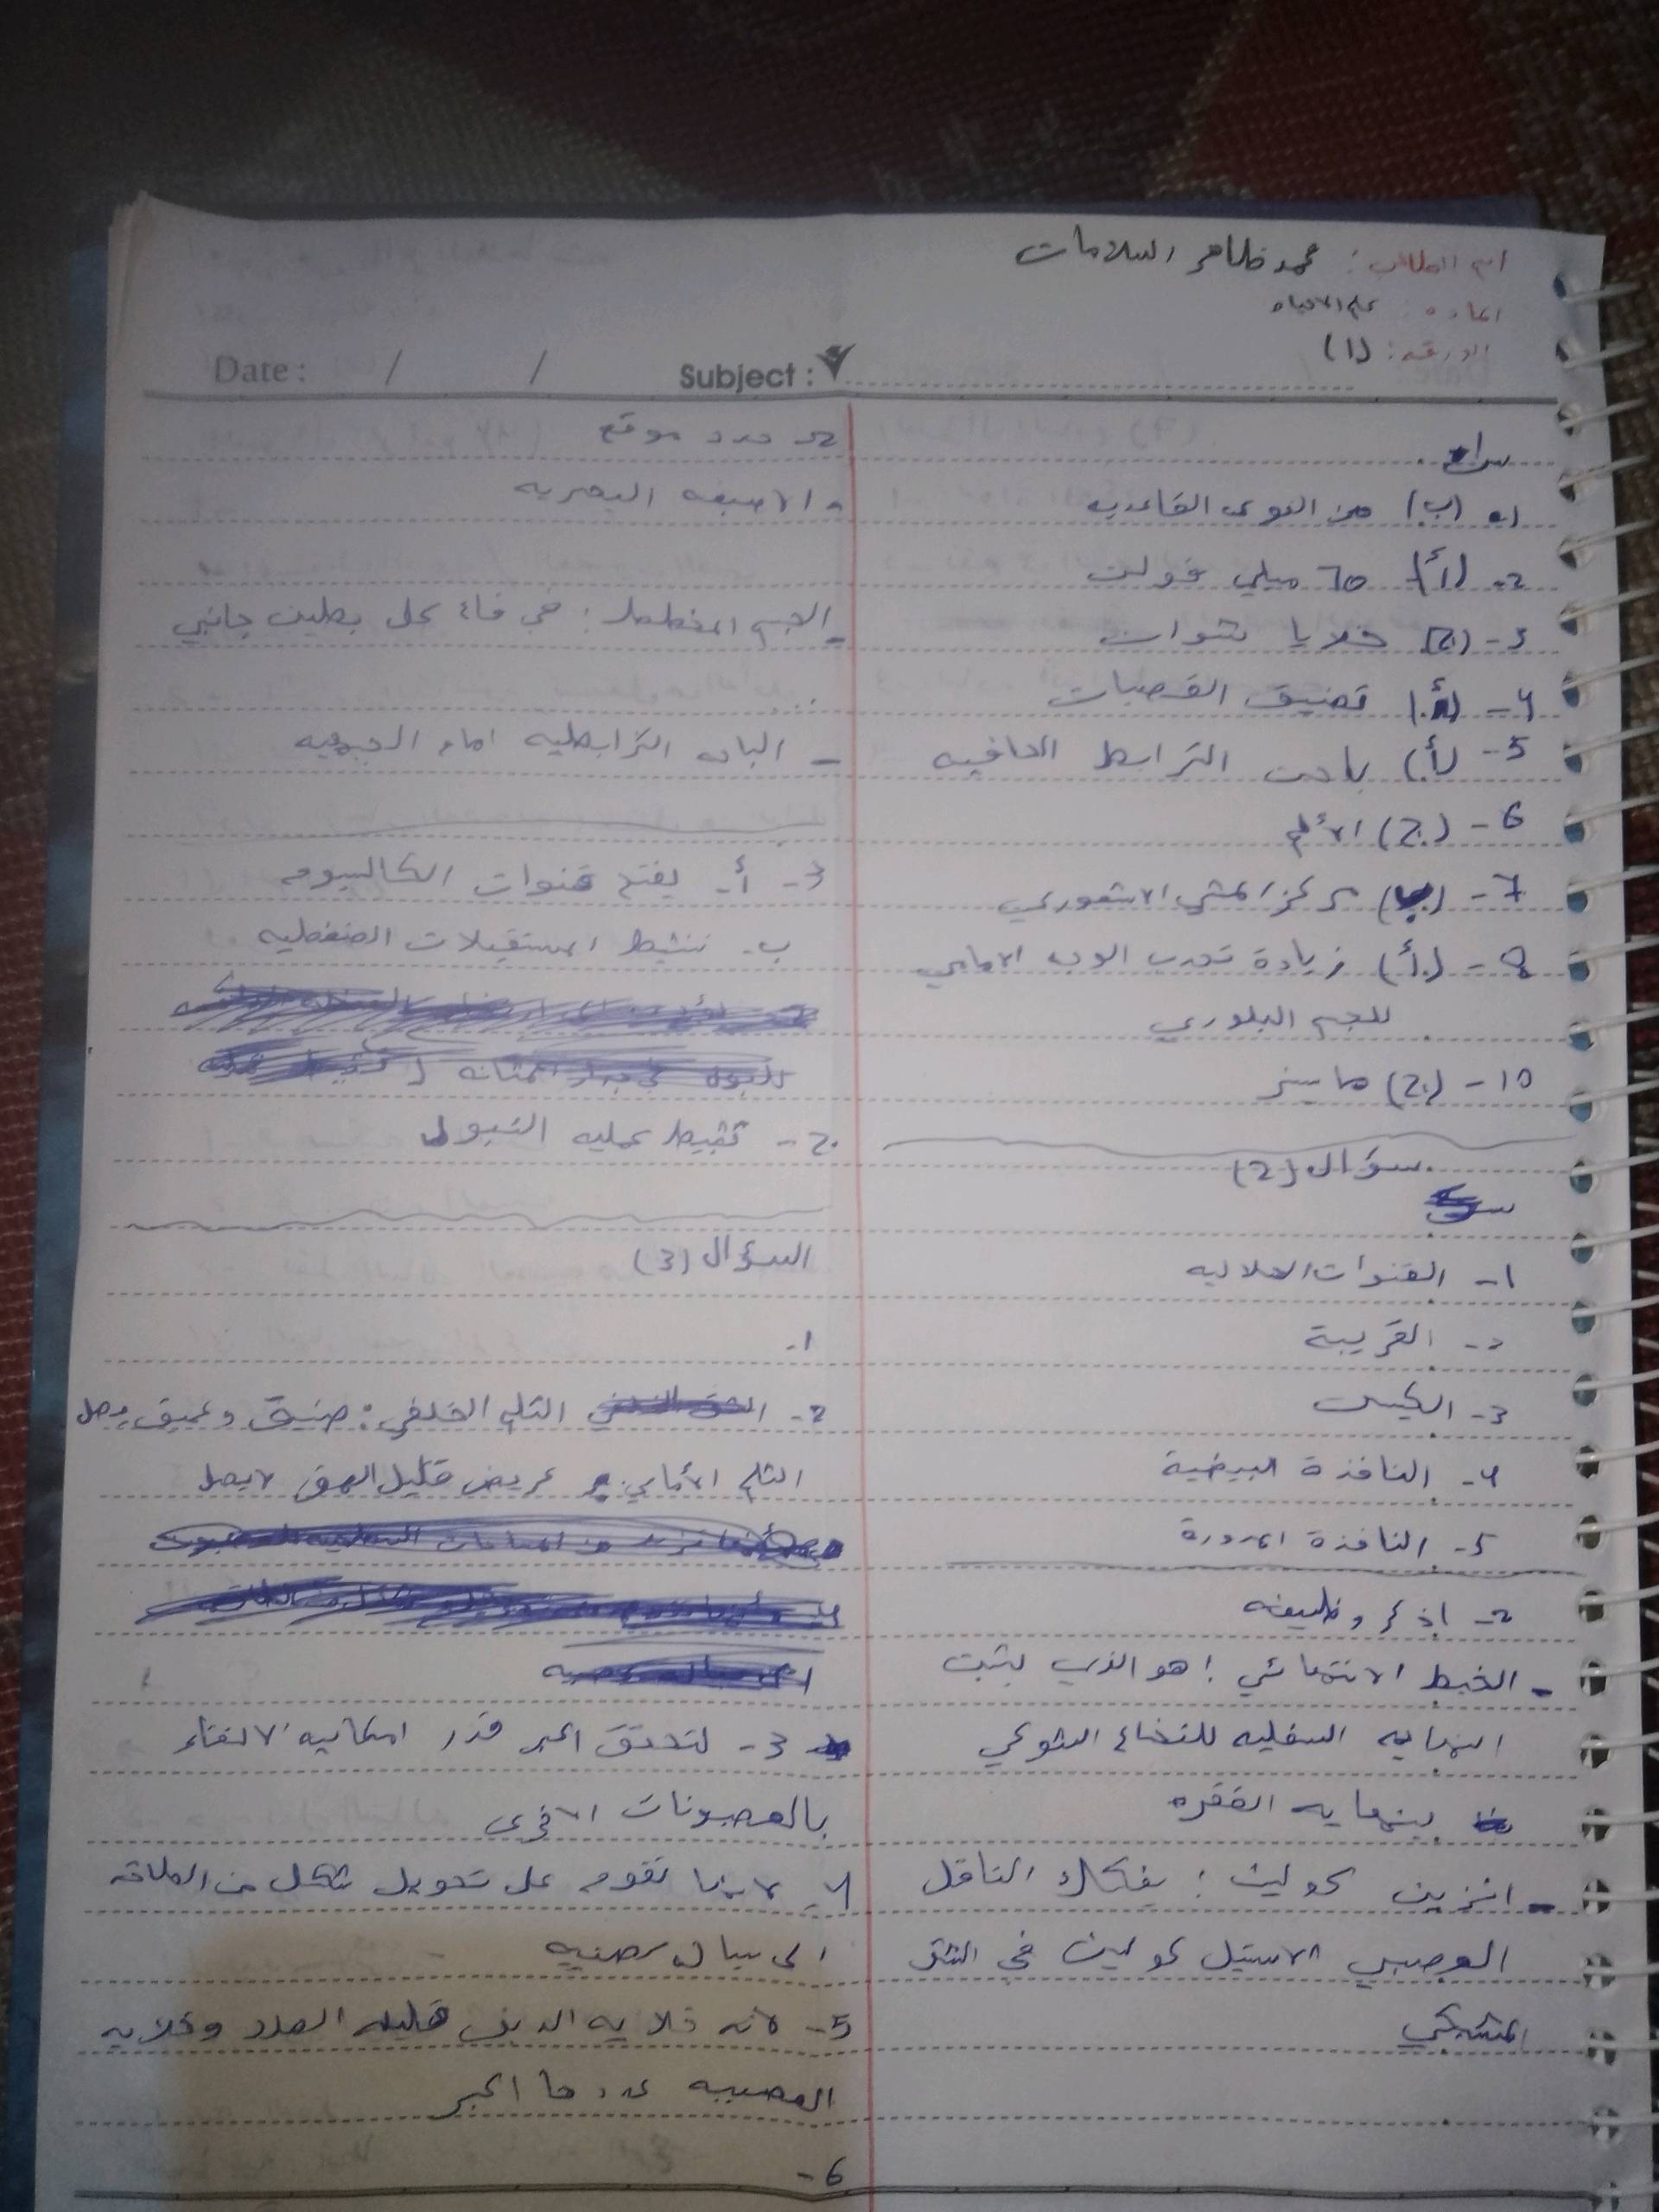 اسم الطالب: محمد ظاهر السلامات
المادة: علم الاحياء
الورقة: (1)
Date: / /
Subject:
س1
1- (ب) من النوى القاعديه
2- (أ) 70 ميلي فولت
3- (ج) خلايا شوان
4- (أ) تضيق القصبات
5- (أ) باحت الترابط الحافيه
6- (ج) الألم
7- (ب) مركز المشي الاشعوري
8- (أ) زيادة تحدب الوجه الامامي
للجسم البلوري
10- (ج) مايسنر
سؤال (2)
1- القنوات الهلاليه
2- القريبة
3- الكييس
4- النافذة البيضية
5- النافذة المدورة
2- اذكر وظيفه
- الخيط الانتهائي: هو الذي يثبت
النهايه السفليه للنخاع الشوكي
بنهايه الفقره
- انزيم كولين: يفكك الناقل
العصبي الاستيل كولين في الشق
المشبكي
2- حدد موقع
- الاصبغه البصريه
- الجسم المخطط: في قاع كل بطين جانبي
- الباحه الترابطيه امام الجبهيه
3- أ- يفتح قنوات الكالسيوم
ب- ننشط المستقبلات الضغطيه
ج- تثبيط عمليه التبول
السؤال (3)
1-
2- الثلم الخلفي: ضيق وعميق يصل
الثلم الأمامي: عريض قليل العمق لا يصل
3- لتحقق اكبر قدر امكانيه الالتقاء
بالعصبونات الاخرى
4- لانها تقوم على تحويل شكل من الطاقه
الى سيال عصبيه
5- لانه خلايه الدبق قليله العدد وخلايه
العصبيه عددها اكبر
6-